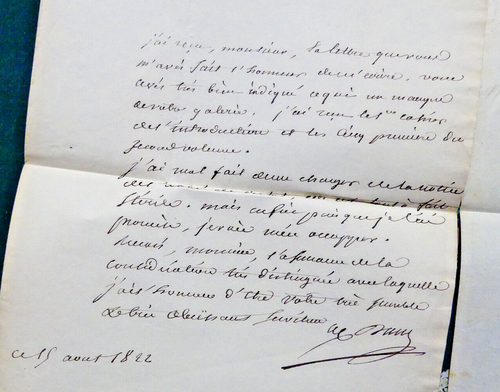 j'ai reçu, monsieur, la lettre que vous
m'avés fait l'honneur de m'écrire. vous
avés très bien indiqué ce qui me manque
de votre galerie. j'ai reçu les cahier
de l'introduction et les cinq premiers du
second volume.
j'ai mal fait de me charger de la notice
des fait
stérile. mais enfin puisque je l'ai
promise, je vais m'en occuper.
Recevés, monsieur, l'assurance de la
considération très distinguée avec laquelle
j'ai l'honneur d'être votre très humble
et très obéissant serviteur
ce 15 aout 1822